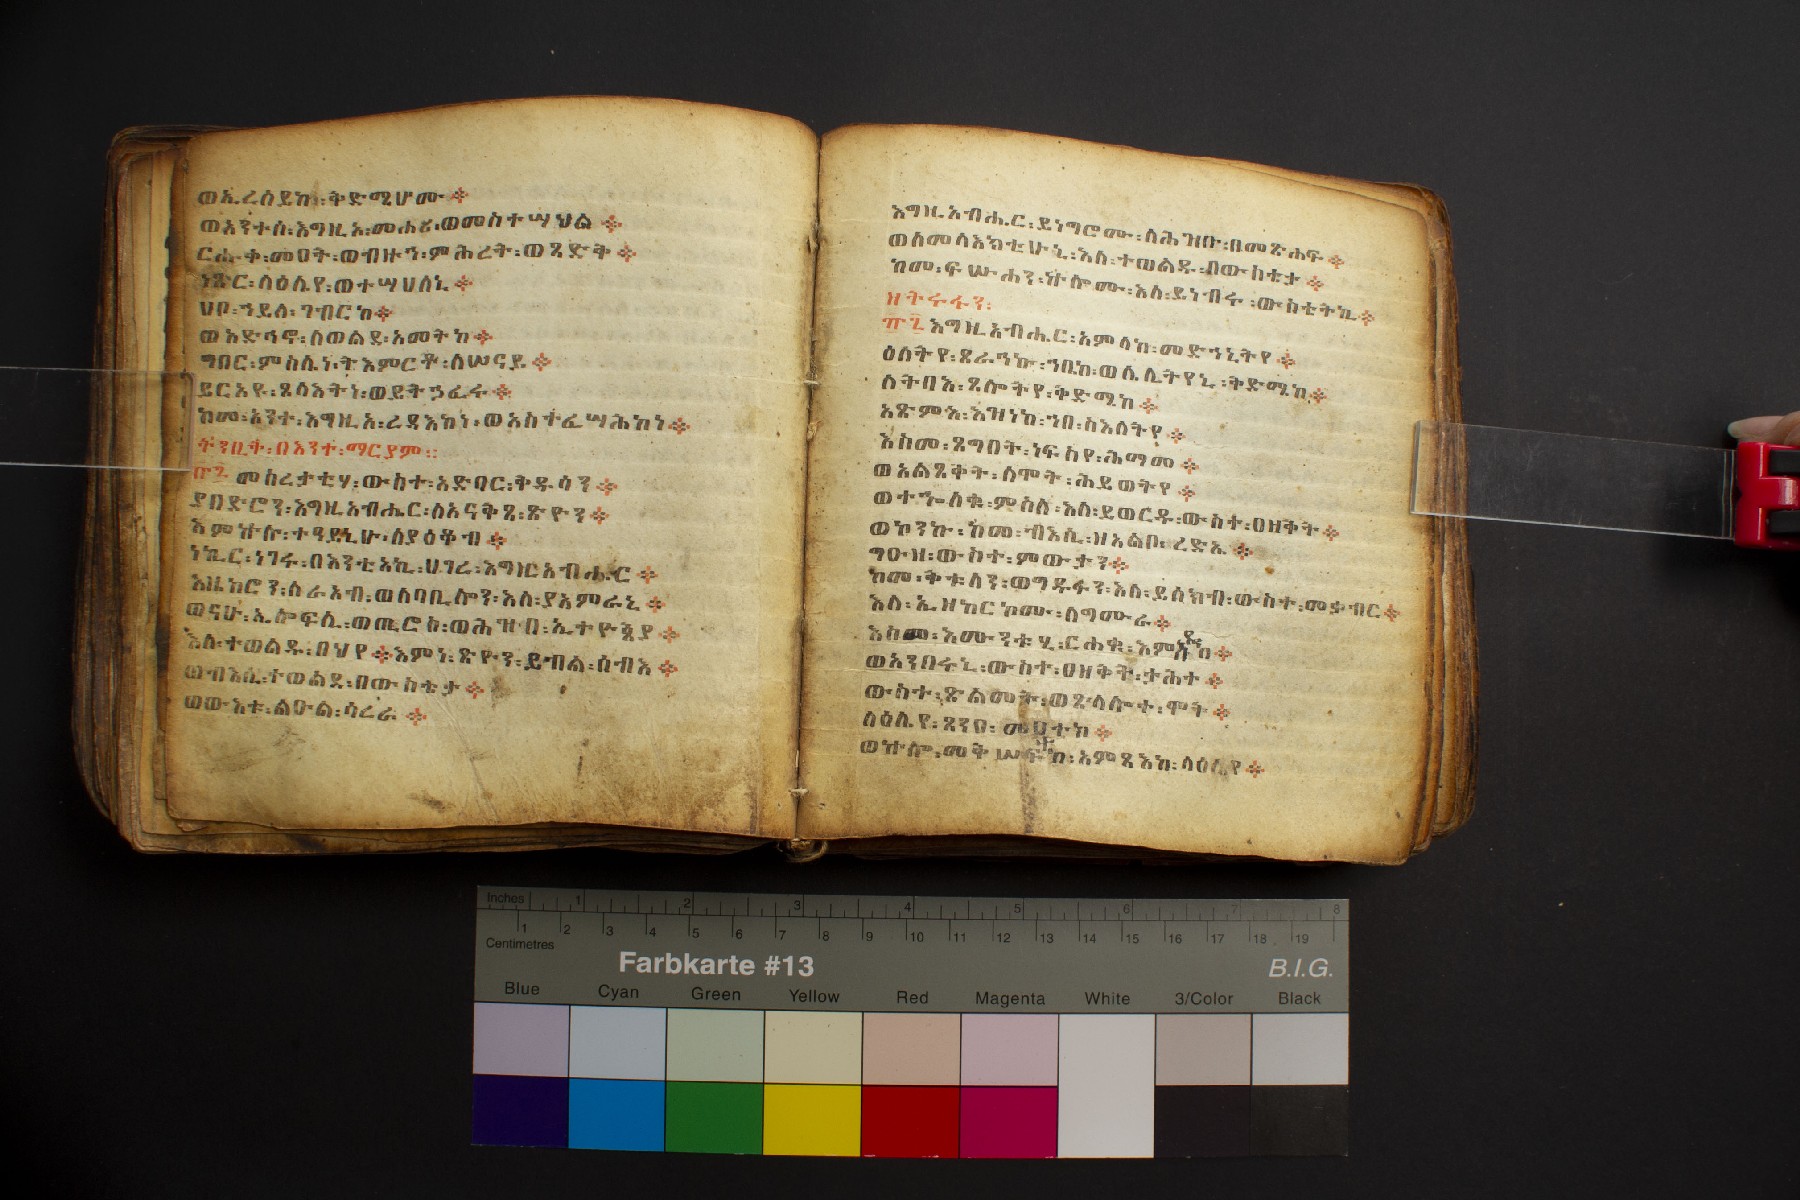 ወኢረሰይከ፡ቅድሜሆሙ፨
ወአንተሰ፡እግዚአ፡መሐሪ፡ወመስተሣህል፨
ርሑቀ፡መዐት፡ወብዙኀ፡ምሕረት፡ወጻድቅ፨
ነጽር፡ላዕሌየ፡ወተሣሀለኒ፨
ሀቦ፡ኀይለ፡ገብርከ፨
ወአድኅኖ፡ለወልደ፡አመትከ፨
ግበር፡ምስሌነ፡ትእምርተ፡ለሠናይ፨
ይርአዩ፡ጸላእትነ፡ወይትኃፈሩ፨
ከመ፡አንተ፡እግዚአ፡ረዳእከነ፡ወአስተፈሣሕከነ፨
ትንቢት፡በእንተ፡ማርያም፡፡
፹፮ መሰረታቲሃ፡ውስተ፡አድባር፡ቅዱሳን፨
ያበድሮን፡እግዚአብሔር፡ለአናቅጸ፡ጽዮን፨
እምኵሉ፡ተዓይኒሁ፡ለያዕቆብ፨
ነኪር፡ነገሩ፡በእንቲአኪ፡ሀገረ፡እግዚአብሔር፨
እዜከሮን፡ለራአብ፡ወለባቢሎን፡እለ፡ያአምራኒ፨
ወናሁ፡ኢሎፍሊ፡ወጢሮስ፡ወሕዝበ፡ኢተዮጵያ፨
እለ፡ተወልዱ፡በህየ፨እምነ፡ጽዮን፡ይብል፡ሰብእ፨
ወብእሲ፡ተወልደ፡በውስቴታ፨
ወውእቱ፡ልዑል፡ሳረራ፨
እግዚአብሔር፡ይነግሮሙ፡ለሕዝቡ፡በመጽሐፍ፨
ወለመላእክቲሁኒ፡እለ፡ተወልዱ፡በውስቴታ፨
ከመ፡ፍሡሐን፡ኵሎሙ፡እለ፡ይነብሩ፡ውስቴትኪ፨
ዘትሩፋን፡
፹፯ እግዚአብሔር፡አምላከ፡መድኀኒትየ፨
ዕለትየ፡ጸራኅኩ፡ኀቤከ፡ወሌሊትየኒ፡ቅድሜከ፨
ለትባእ፡ጸሎትየ፡ቅድሜከ፨
አጽምእ፡እዝነከ፡ኀበ፡ስእለትየ፨
እስመ፡ጸግበት፡ነፍስየ፡ሕማመ፨
ወአልጸቀት፡ለሞት፡ሕይወትየ፨
ወተኈለቁ፡ምስለ፡እለ፡ይወርዱ፡ውስተ፡ዐዘቅት፨
ወኮንኩ፡ከመ፡ብእሲ፡ዘአልቦ፡ረድኤ፨
ግዑዝ፡ውስተ፡ምውታን፨
ከመ፡ቅቱላን፡ወግዱፋን፡እለ፡ይሰክቡ፡ውስተ፡መቃብር፨
እለ፡ኢዘከርኮሙ፡ለግሙራ፨
እስመ፡እሙንቱሂ፡ርሐቁ፡እምእዴከ፨
ወአንበሩኒ፡ውስተ፡ዐዘቅት፡ታሕተ፨
ውስተ፡ጽልመት፡ወጽላሎተ፡ሞት፨
ላዕሌየ፡ጸንዐ፡መዐተከ፨
ወኵሎ፡መቅሠፍተከ፡አምጻእከ፡ላዕሌየ፨